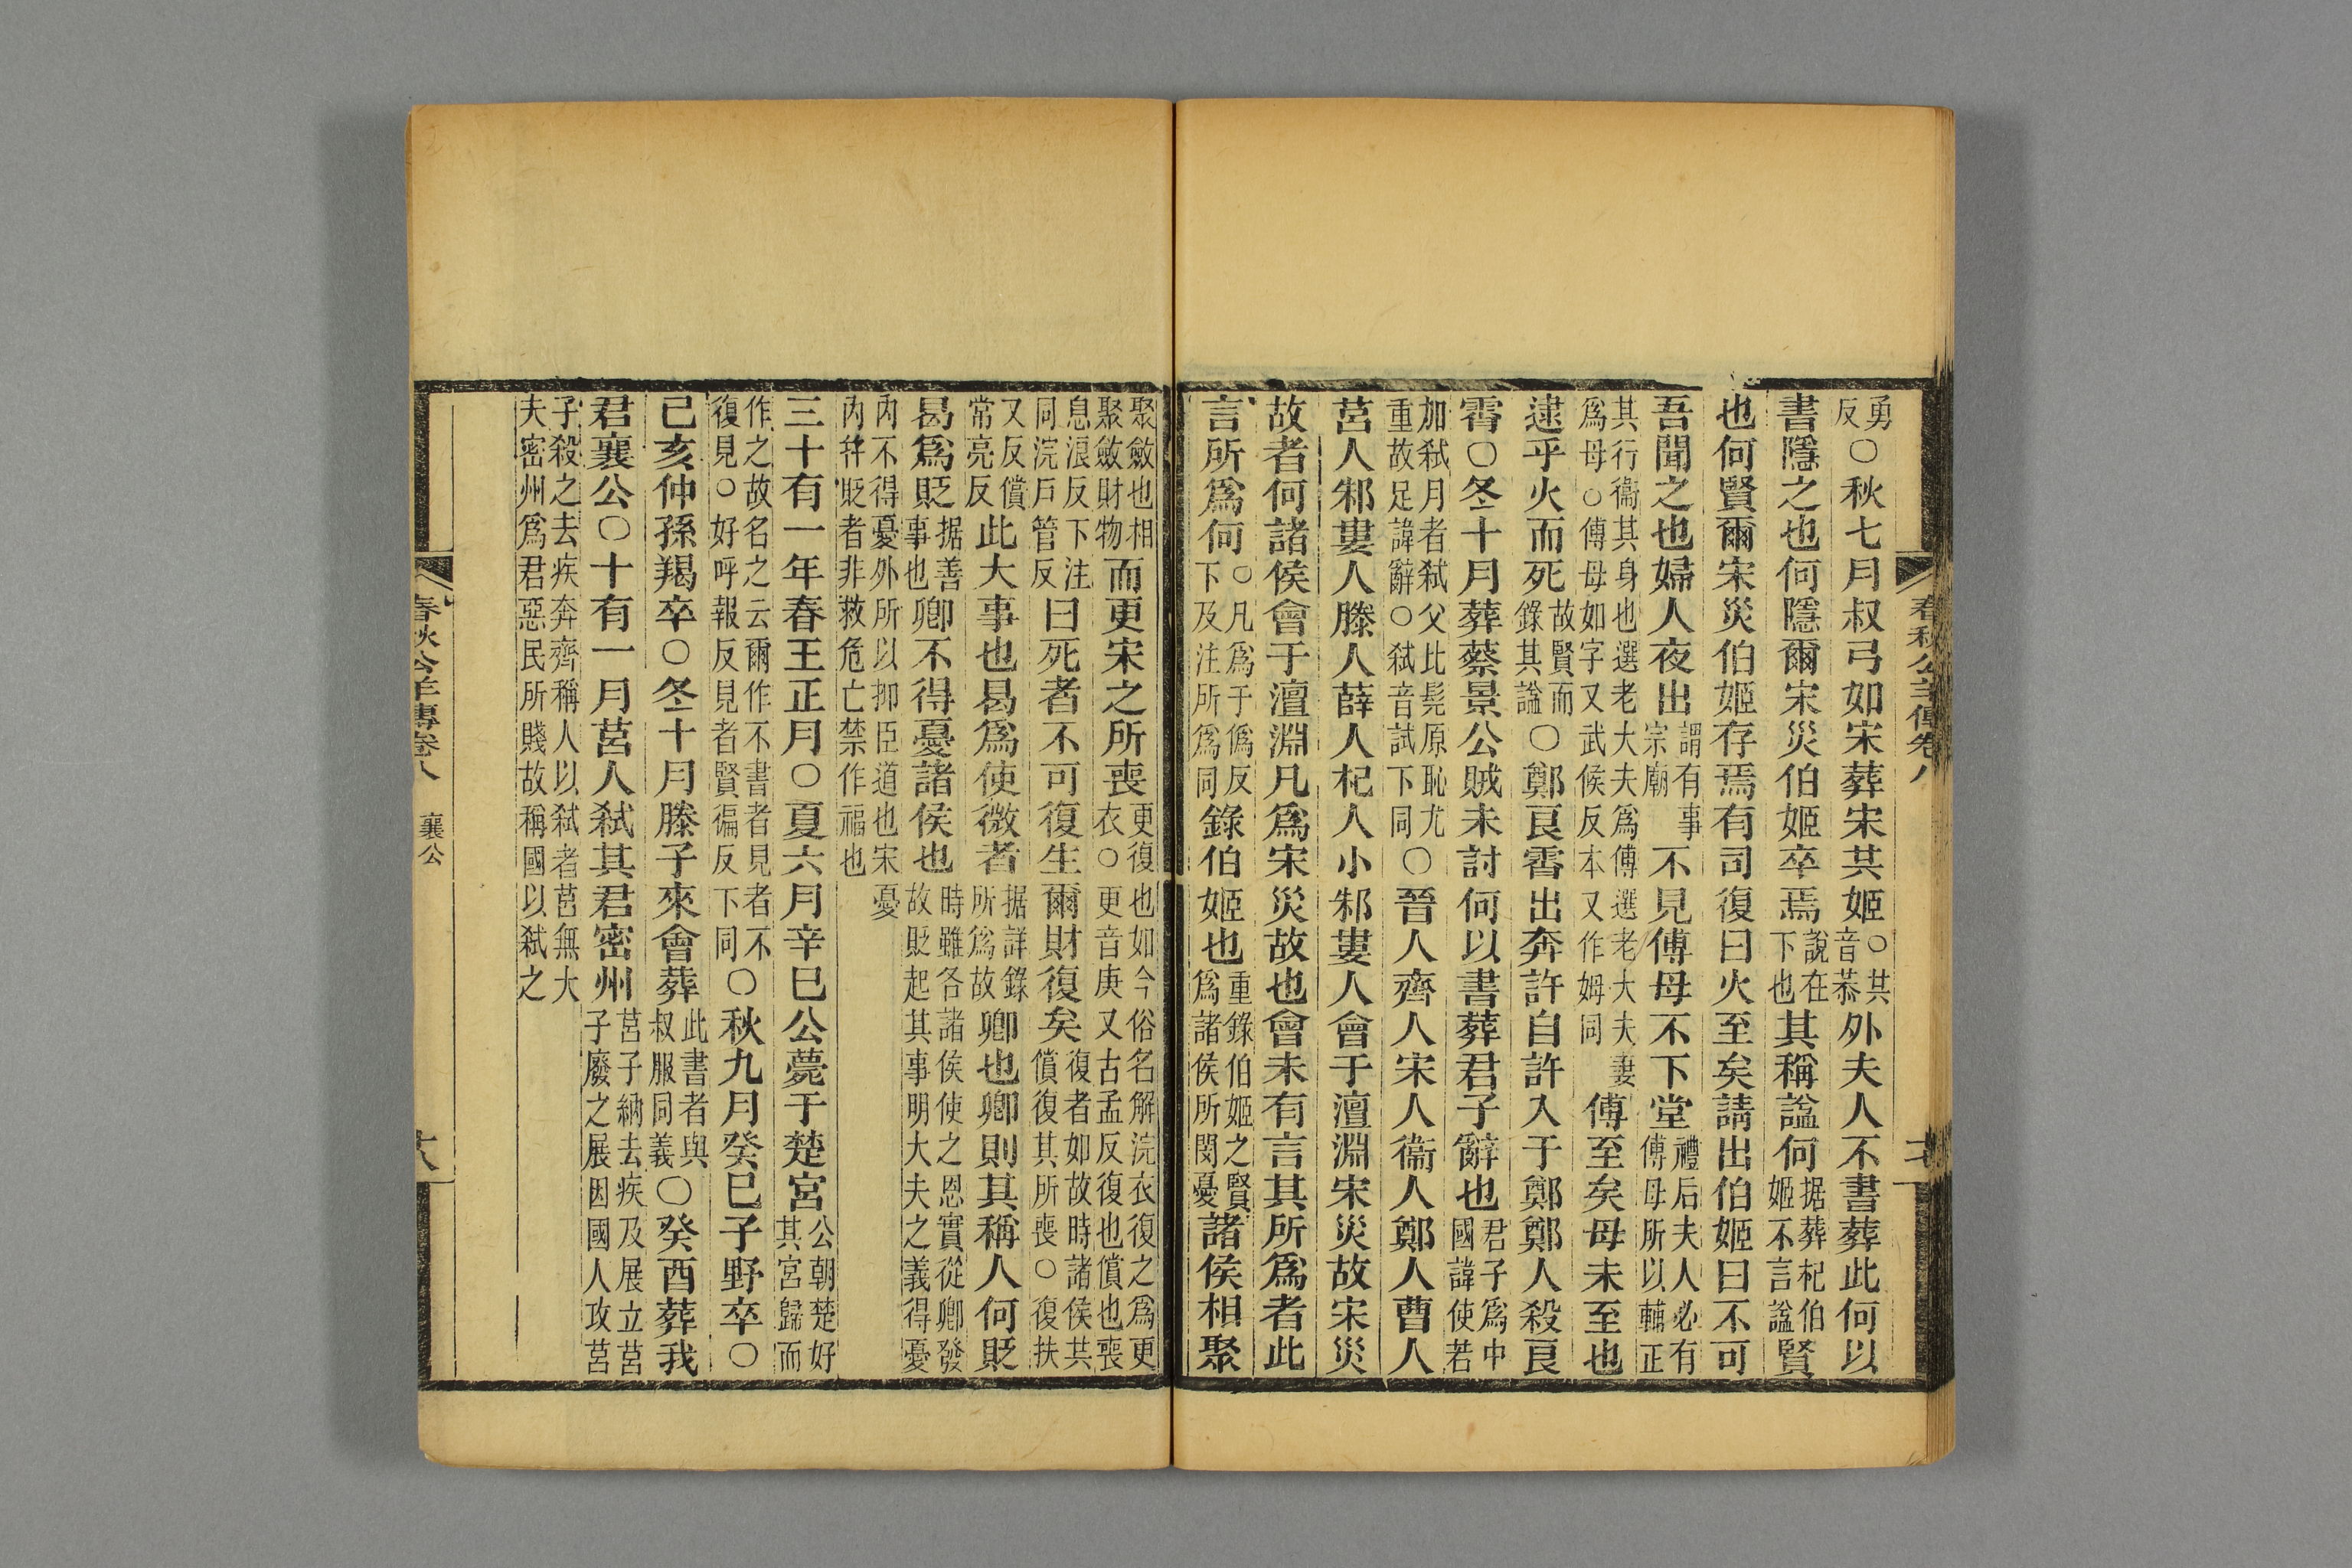 春秋公羊傳卷八
勇反○秋七月叔弓如宋葬宋共姬○共音恭外夫人不書葬此何以
書隱之也何隱爾宋災伯姬卒焉說在下也其稱謚何据葬杞伯姬不言謚賢
也何賢爾宋災伯姬存焉有司復曰火至矣請出伯姬曰不可
吾聞之也婦人夜出謂有事宗廟不見傅母不下堂禮后夫人必有傅母所以輔正
其行衞其身也選老大夫爲傅選老大夫妻爲母○傅母如字又武候反本又作姆同傅至矣母未至也
逮乎火而死故賢而錄其謚○鄭良霄出奔許自許入于鄭鄭人殺良
霄○冬十月葬蔡景公賊未討何以書葬君子辭也君子爲中國諱使若
加弒月者弒父比髡原恥尤重故足諱辭○弒音試下同○晉人齊人宋人衞人鄭人曹人
莒人邾婁人滕人薛人杞人小邾婁人會于澶淵宋災故宋災
故者何諸侯會于澶淵凡爲宋災故也會未有言其所爲者此
言所爲何○凡爲于僞反下及注所爲同錄伯姬也重錄伯姬之賢爲諸侯所閔憂諸侯相聚
聚斂也相聚斂財物而更宋之所喪更復也如今俗名解浣衣復之爲更衣○更音庚又古孟反復也償也喪
息浪反下注同浣戶管反曰死者不可復生爾財復矣復者如故時諸侯共償復其所喪○復扶
又反償常亮反此大事也曷爲使微者据詳錄所爲故卿也卿則其稱人何貶
曷爲貶据善事也卿不得憂諸侯也時雖各諸侯使之恩實從卿發故貶起其事明大夫之義得憂
內不得憂外所以抑臣道也宋憂內幷貶者非救危亡禁作福也
三十有一年春王正月○夏六月辛巳公薨于楚宮公朝楚好其宮歸而
作之故名之云爾作不書者見者不復見○好呼報反見者賢徧反下同○秋九月癸巳子野卒○
已亥仲孫羯卒○冬十月滕子來會葬此書者與叔服同義○癸酉葬我
君襄公○十有一月莒人弒其君密州莒子納去疾及展立莒子廢之展因國人攻莒
子殺之去疾奔齊稱人以弒者莒無大夫密州爲君惡民所賤故稱國以弒之
春秋公羊傳卷八　襄公